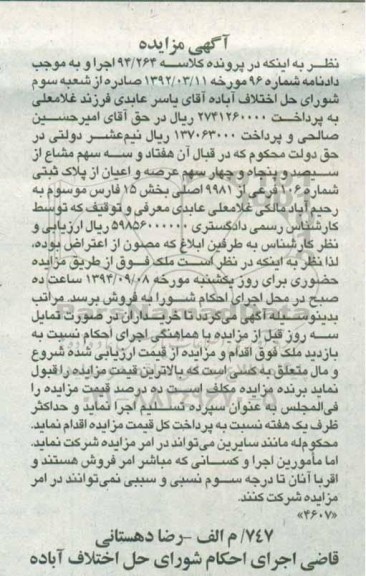 آگهی مزایده
نظر به اینکه در پرونده کلاسه ۹۴/۲۶۳ اجرا و به موجب
دادنامه شماره ۹۶ مورخه ۱۳۹۲/۰۳/۱۱ صادره از شعبه سوم
شورای حل اختلاف آباده آقای یاسر عابدی فرزند غلامعلی
به پرداخت ۲۷۳۱۲۶۰۰۰۰ ریال در حق آقای امیرحسین
صالحی و پرداخت ۱۳۷۰۶۳۰۰۰ ریال نیم‌عشر دولتی در
حق دولت محکوم که در قبال آن هفتاد و سه سهم مشاع از
سیصد و پنجاه و چهار سهم عرصه و اعیان از پلاک ثبتی
شماره ۱۰۶ فرعی از ۹۹۸۱ اصلی بخش ۱۵ فارس موسوم به
رحیم آباد مالکی غلامعلی عابدی معرفی و توقیف که توسط
کارشناس رسمی دادگستری ۵۹۸۵۶۰۰۰۰۰۰ ریال ارزیابی و
نظر کارشناس به طرفین ابلاغ که مصون از اعتراض بوده،
لذا نظر به اینکه در نظر است ملک فوق از طریق مزایده
حضوری برای روز یکشنبه مورخه ۱۳۹۴/۰۹/۰۸ ساعت ده
صبح در محل اجرای احکام شورا به فروش برسد. مراتب
بدینوسیله آگهی می‌گردد تا خریداران در صورت تمایل
سه روز قبل از مزایده با هماهنگی اجرای احکام نسبت به
بازدید ملک فوق اقدام و مزایده از قیمت ارزیابی شده شروع
و مال متعلق به کسی است که بالاترین قیمت مزایده را قبول
نماید برنده مزایده مکلف است ده درصد قیمت مزایده را
فی‌المجلس به عنوان سپرده تسلیم اجرا نماید و حداکثر
ظرف یک هفته نسبت به پرداخت کل قیمت مزایده اقدام نماید.
محکوم‌له مانند سایرین می‌تواند در امر مزایده شرکت نماید.
اما مأمورین اجرا و کسانی که مباشر امر فروش هستند و
اقربا آنان تا درجه سوم نسبی و سببی نمی‌توانند در امر
مزایده شرکت کنند.
«۴۶۰۷»
۷۴۷/ م الف -رضا دهستانی
قاضی اجرای احکام شورای حل اختلاف آباده